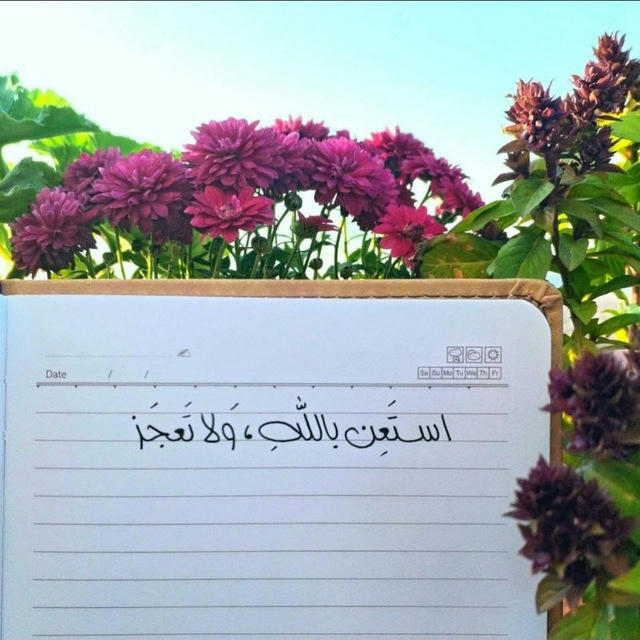 Date / /
Sa Su Mo Tu We Th Fr
استَعِن باللّٰهِ، وَلا تَعجَز